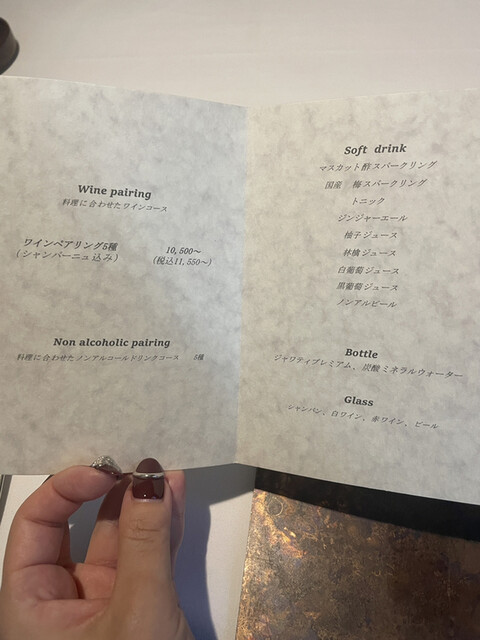 Wine pairing
料理に合わせたワインコース
ワインペアリング5種
(シャンパーニュ込み)
10,500～
(税込11,550～)
Non alcoholic pairing
料理に合わせたノンアルコールドリンクコース 5種
Soft drink
マスカット酢スパークリング
国産 梅スパークリング
トニック
ジンジャーエール
柚子ジュース
林檎ジュース
白葡萄ジュース
黒葡萄ジュース
ノンアルビール
Bottle
ジャワティプレミアム、炭酸ミネラルウォーター
Glass
シャンパン、白ワイン、赤ワイン、ビール